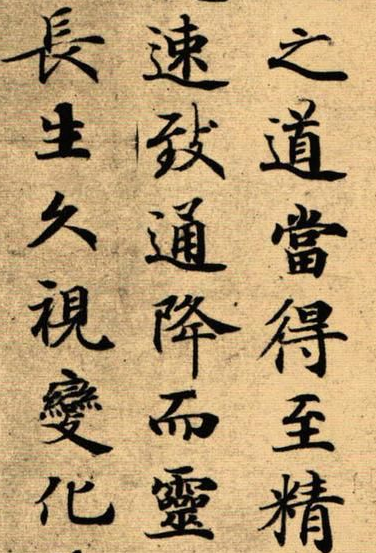 之道當得至精
速致通降而靈
長生久視變化